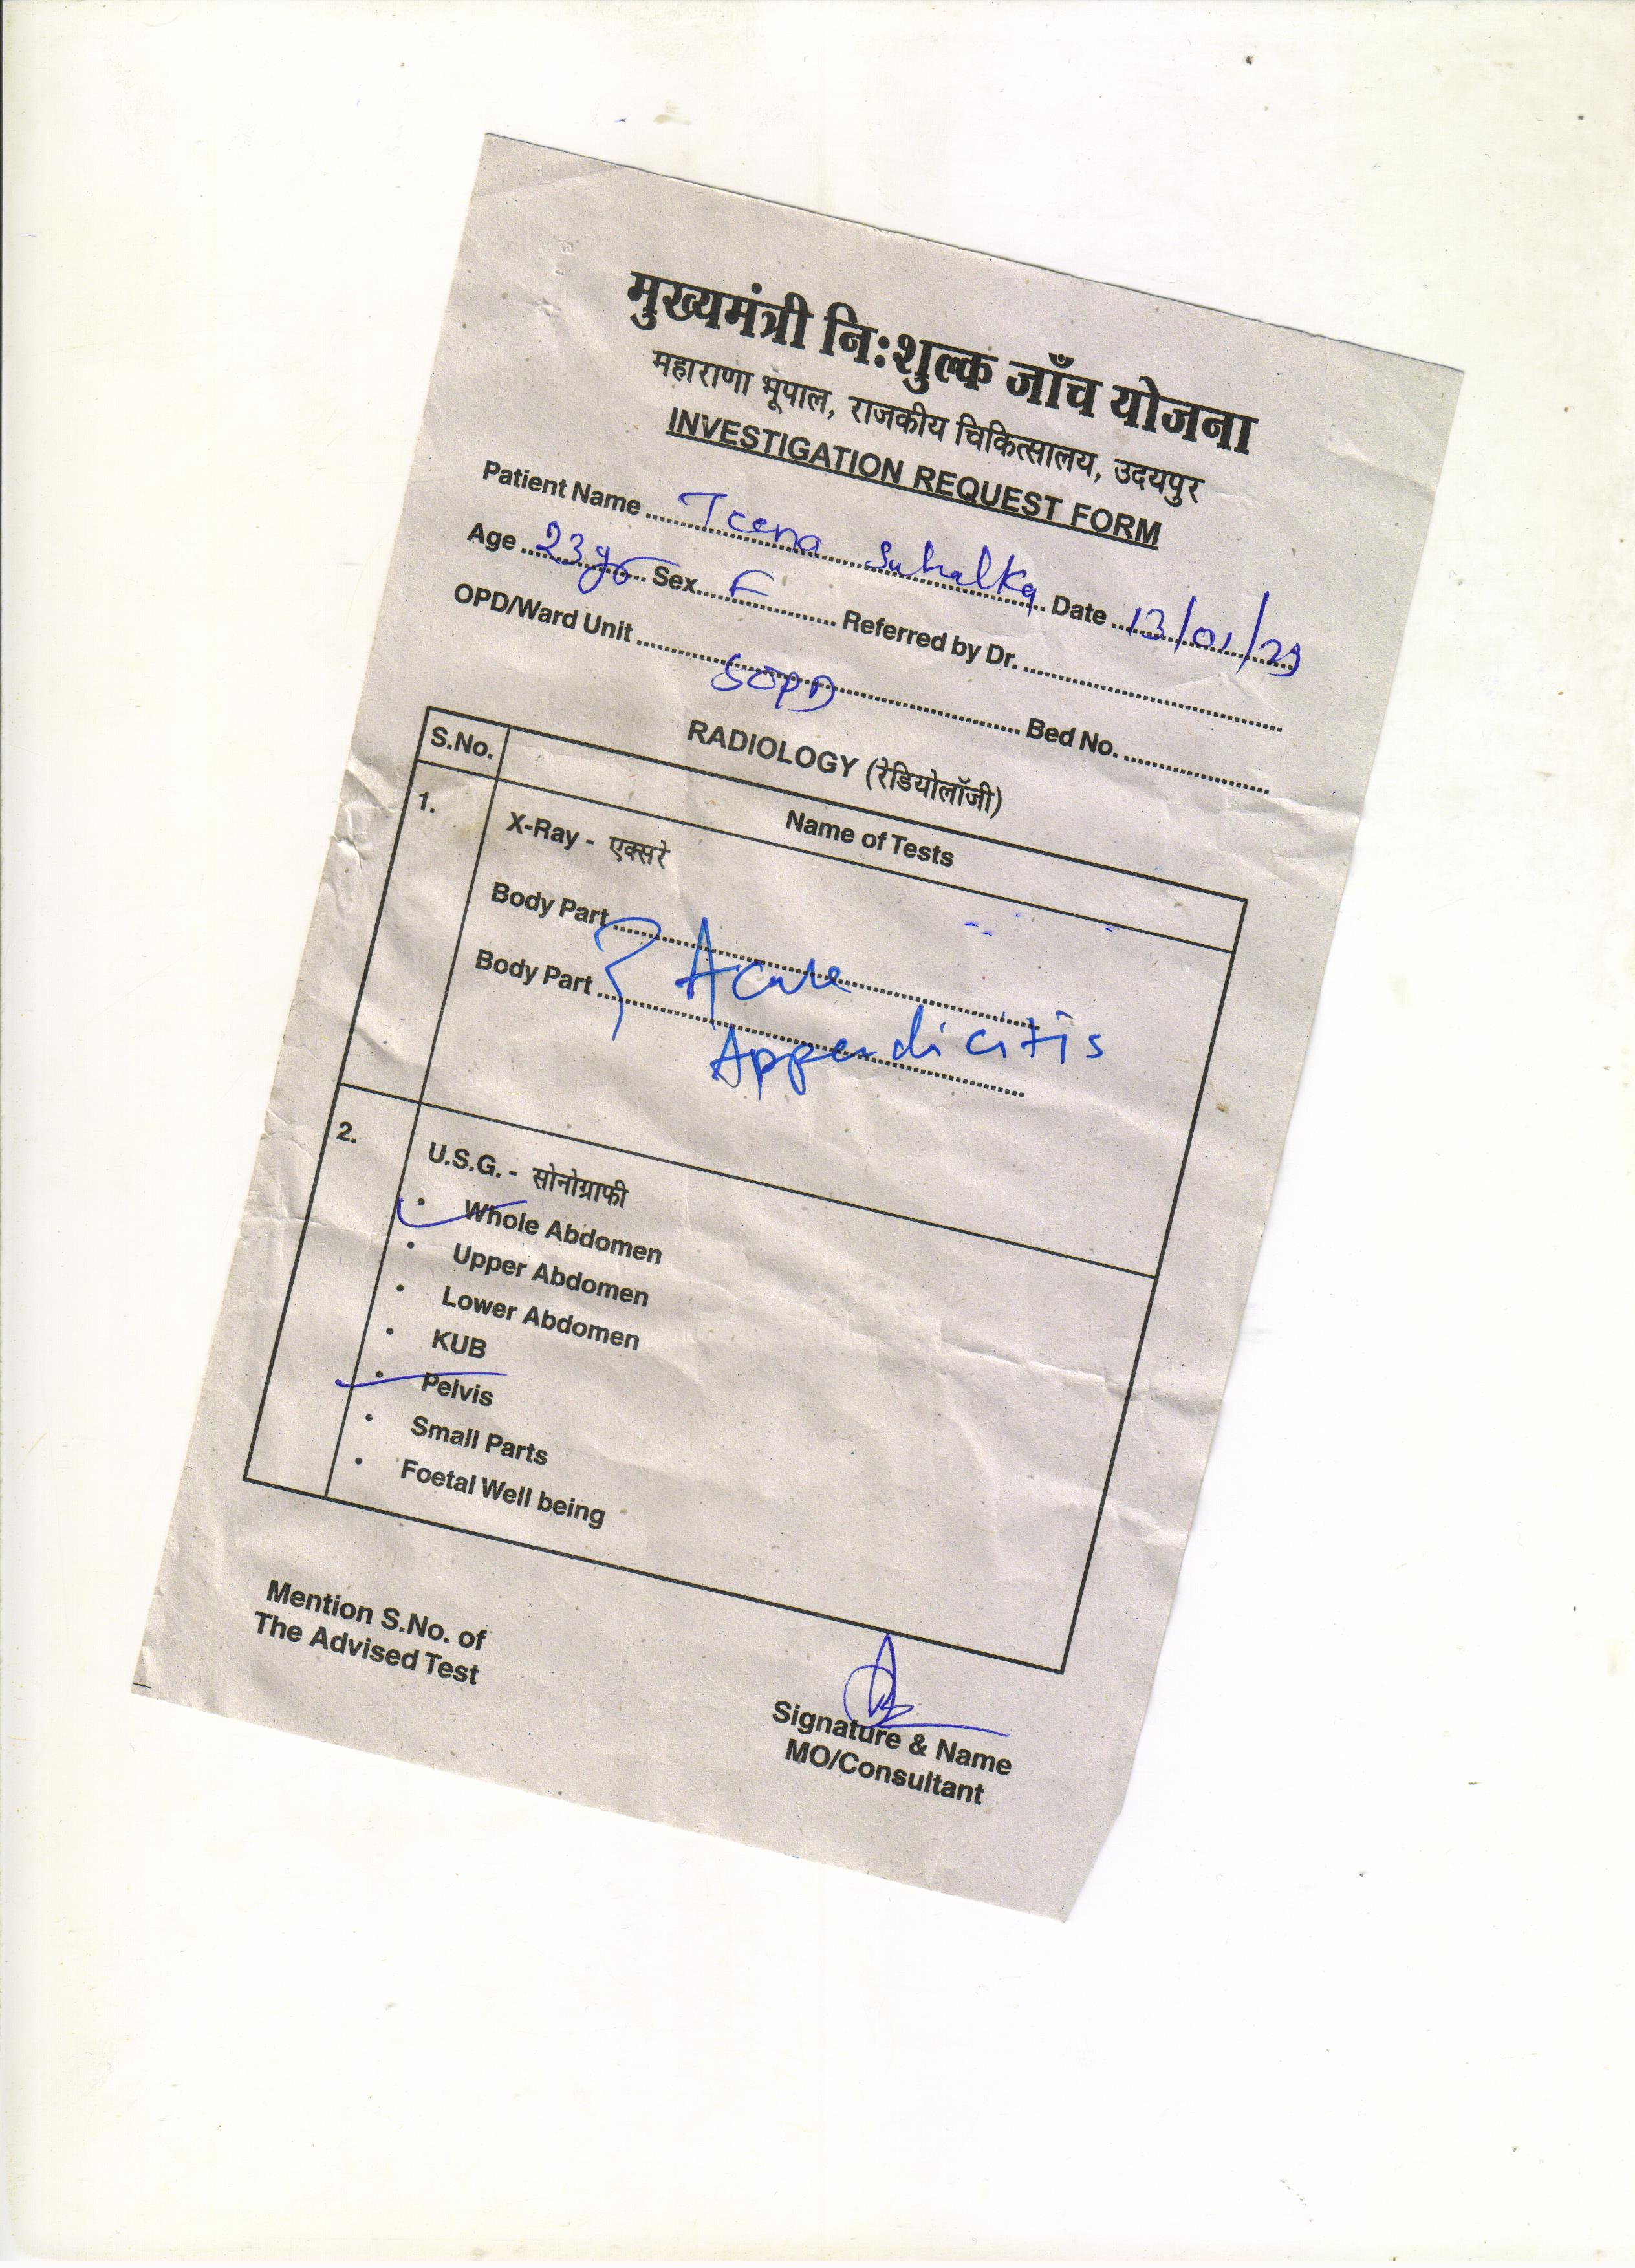 मुख्यमंत्री निःशुल्क जाँच योजना
महाराणा भूपाल, राजकीय चिकित्सालय, उदयपुर
INVESTIGATION REQUEST FORM
Patient Name Teena Suhalka Date 13/01/23
Age 23 yr Sex F Referred by Dr.
OPD/Ward Unit SOPD Bed No.
RADIOLOGY (रेडियोलॉजी)
S.No. Name of Tests
1. X-Ray - एक्सरे
Body Part Acute
Body Part Appendicitis
2. U.S.G. - सोनोग्राफी
• Whole Abdomen
• Upper Abdomen
• Lower Abdomen
• KUB
• Pelvis
• Small Parts
• Foetal Well being
Mention S.No. of
The Advised Test
Signature & Name
MO/Consultant